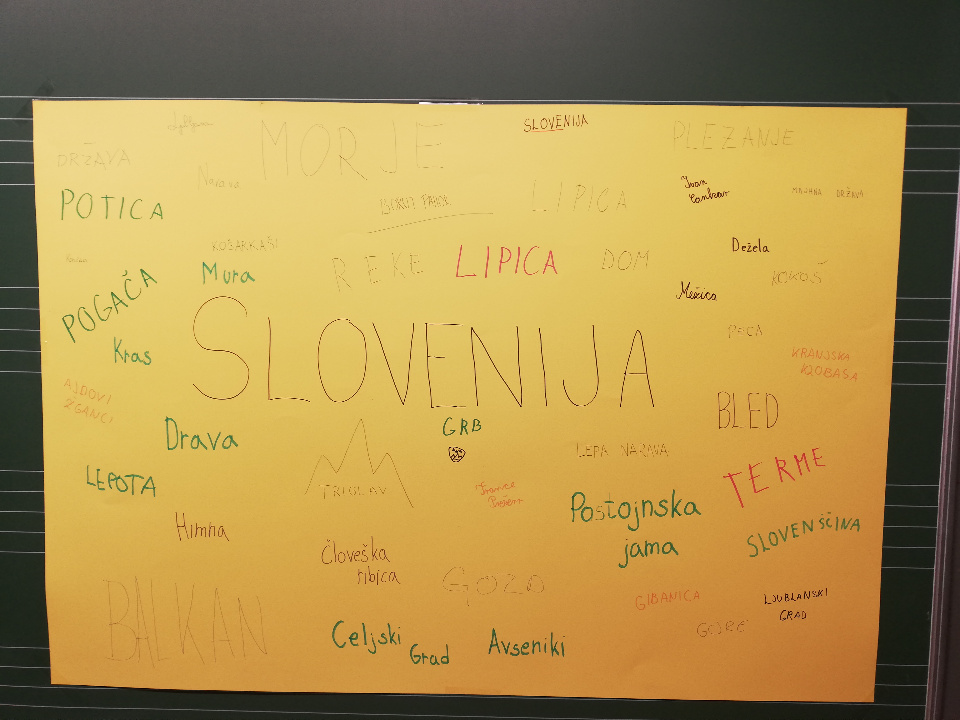 MORJE
SLOVENIJA
PLEZANJE
DRŽAVA
POTICA
LIPICA
Ivan
Cankar
MAJHNA DRŽAVA
KOŠARKAŠI
Mura
REKE
LIPICA
DOM
Dežela
KOKOŠ
POGAČA
Mežica
Kras
SLOVENIJA
PECA
KRANJSKA
KLOBASA
AJDOVI
ŽGANCI
BLED
Drava
GRB
LEPA NARAVA
TERME
LEPOTA
TRIGLAV
France
Prešeren
Postojnska
jama
SLOVENŠČINA
Himna
Človeška
ribica
GOZD
BALKAN
GIBANICA
LJUBLANSKI
GRAD
GORE
Celjski
Grad
Avseniki